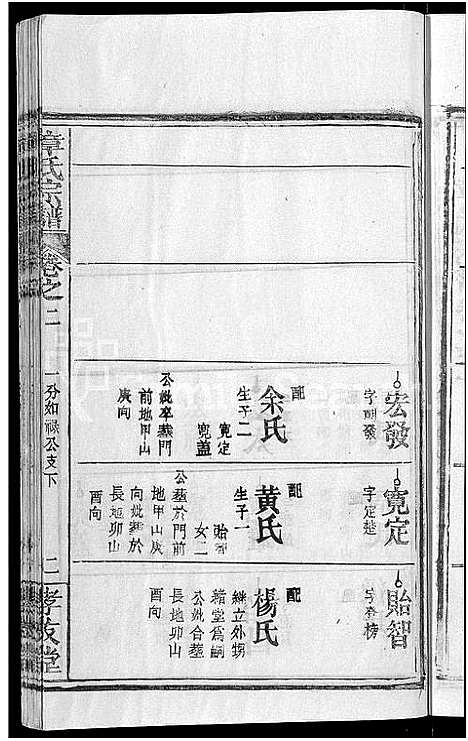 章氏宗譜
卷之二
一分如祿公支下
二
孝友堂
宏發
字朝發
配
余氏
生子二
寬定
寬蓋
公妣卒葬門
前地甲山
庚向
寬定
字定楚
配
黃氏
生子一
貽智
女一
公葬於門前
地甲山庚
向妣葬於
長地卯山
酉向
貽智
字登榜
配
楊氏
繼立外甥
緒堂爲嗣
公妣合墓
長地卯山
酉向